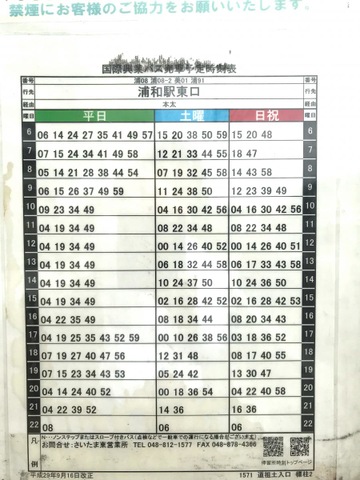 禁煙にお客様のご協力をお願いいたします。
国際興業バス発車予定時刻表
番号 浦08 浦08-2 美01 浦91 番号
行先 浦和駅東口 行先
経由 本太 経由
曜日 平日 土曜 日祝 曜日
6 06 14 24 27 35 41 49 57 15 20 38 50 59 15 20 48 6
7 07 15 24 34 41 49 58 12 21 33 44 55 18 47 7
8 05 14 21 28 38 44 54 07 19 32 45 58 14 43 58 8
9 06 15 26 37 49 59 11 24 38 50 12 23 39 49 9
10 09 23 34 49 04 16 30 42 56 04 16 30 42 56 10
11 04 19 34 49 08 22 34 48 08 22 34 48 11
12 04 19 34 49 00 14 26 40 52 00 14 26 40 51 12
13 04 19 34 49 06 18 32 44 58 06 17 33 43 58 13
14 04 19 34 49 10 24 37 50 10 24 36 50 14
15 04 19 34 49 02 16 28 42 52 02 16 28 42 53 15
16 04 22 35 49 08 18 34 44 08 18 34 49 16
17 04 19 25 35 43 52 59 00 10 26 38 56 03 18 36 52 17
18 07 19 27 40 47 56 12 31 48 08 17 40 55 18
19 07 13 27 33 47 53 05 24 42 08 17 34 51 19
20 04 14 24 40 52 00 18 36 54 04 22 40 58 20
21 04 22 39 52 14 36 16 36 21
22 08 08 06 22
凡例 N…ノンステップまたはスロープ付きバス(点検などで一般車での運行になる場合がございます)
お問合せ:さいたま東営業所 TEL 048-812-1577 FAX 048-878-4366
停留所時刻トップページ
平成29年9月16日改正 1571 道祖土入口 標柱2